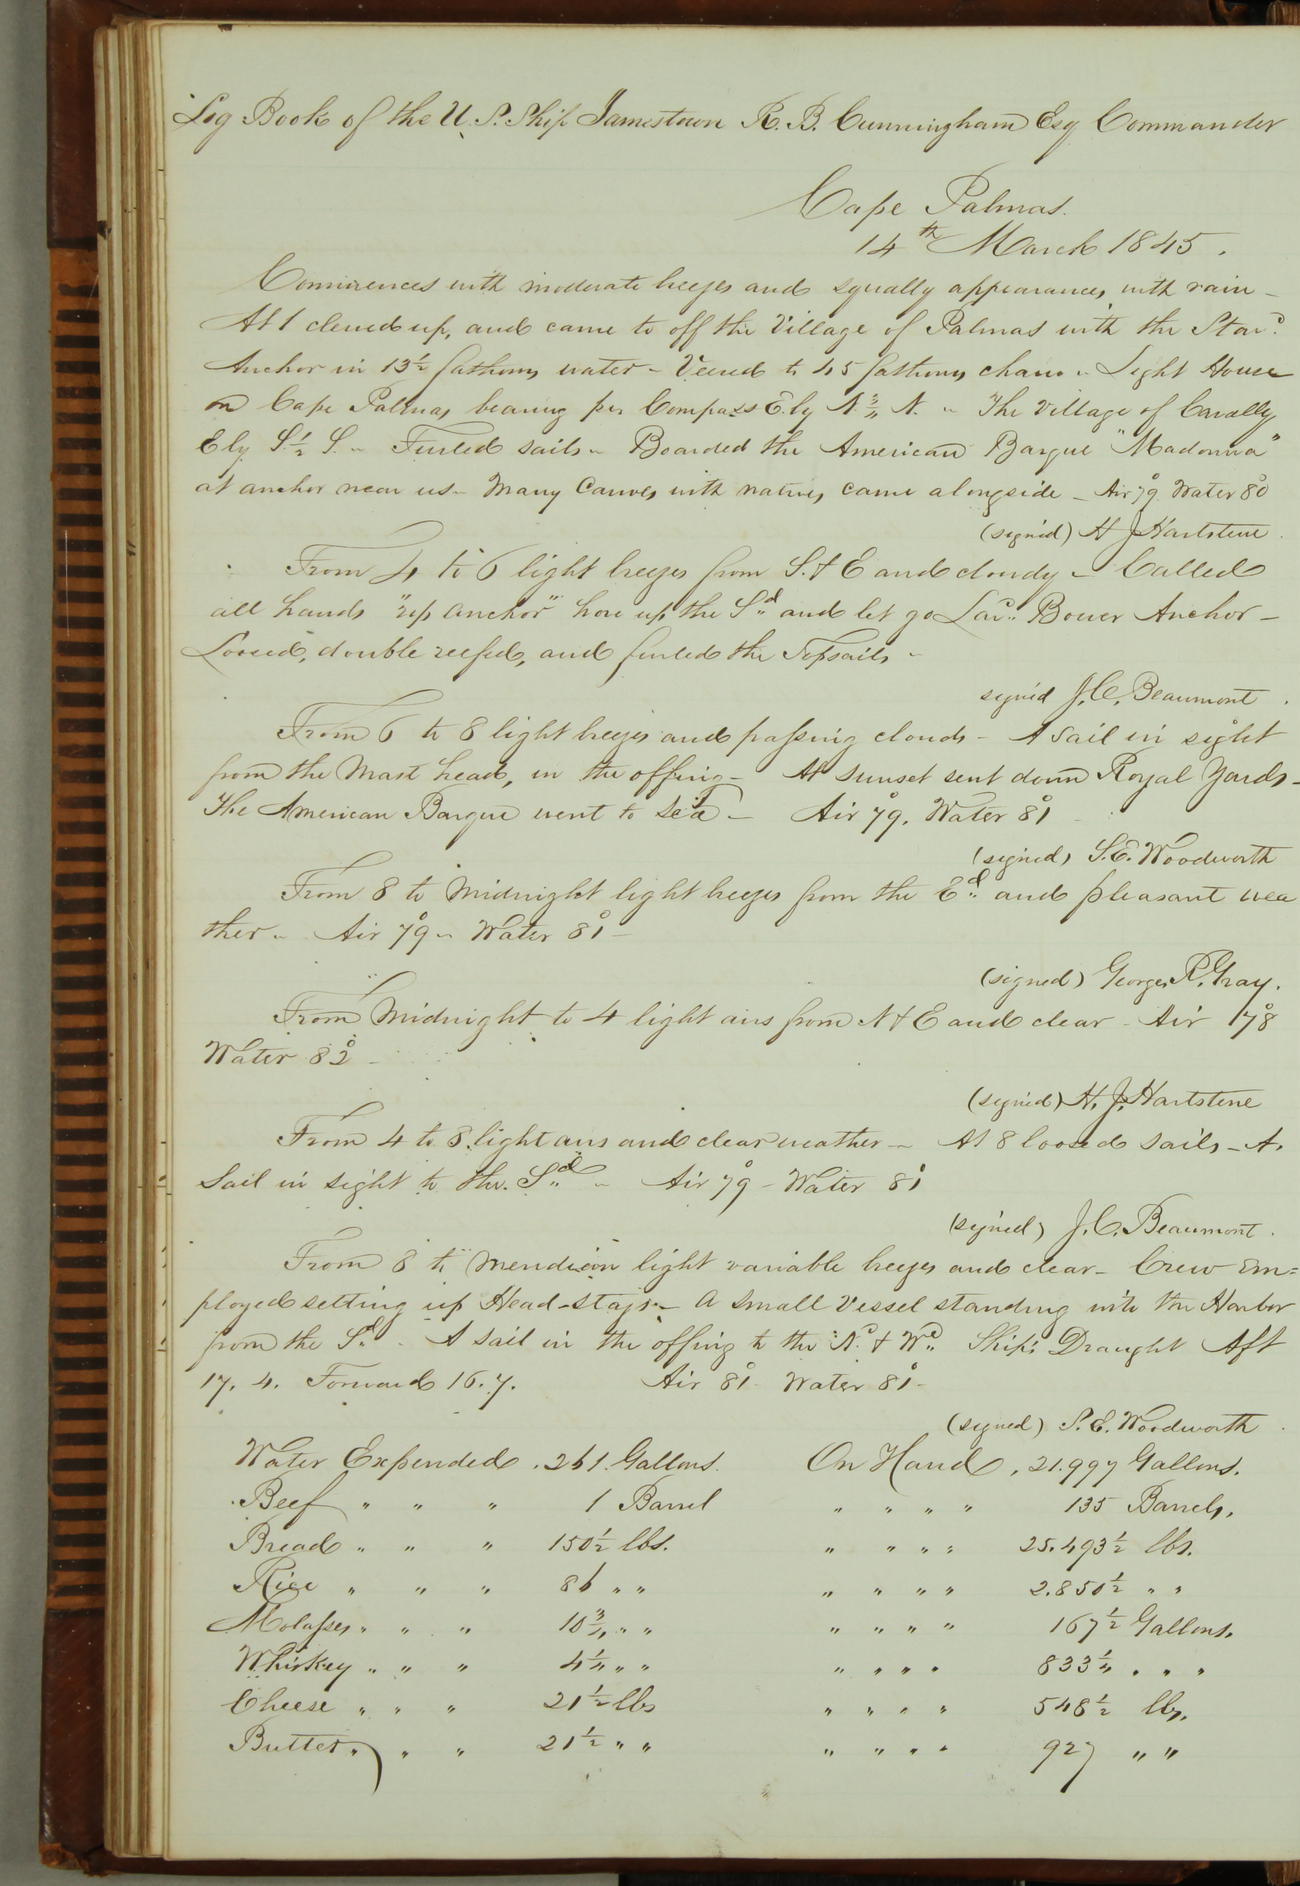 Log Book of the U. S. Ship Jamestown R. B. Cunningham Esq Commander
Cape Palmas.
14th March 1845.
Commences with moderate breezes and squally appearances, with rain –
At 1 clewed up, and came to off the Village of Palmas with the Star:d
Anchor in 13 1/2 fathoms water – Veered to 45 fathoms chain – Light House
on Cape Palmas bearing per Compass E. by N. 3/4 N. – The Village of Cavally
E by S. 1/2 S. – Furled sails – Boarded the American Barque "Madonna"
at anchor near us – Many Canoes with natives came alongside – Air 79° Water 80°
(signed) H J Hartstene
From 4 to 6 light breezes from S. & E and cloudy – Called
all hands "up anchor" hove up the S:d and let go Lar:d Bower Anchor –
Loosed, double reefed, and furled the Topsails –
signed J. C. Beaumont
From 6 to 8 light breezes and passing clouds – A sail in sight
from the Mast head, in the offing – At sunset sent down Royal Yards –
The American Barque went to sea – Air 79°. Water 81°
(signed) S. E. Woodworth
From 8 to Midnight light breezes from the E:d and pleasant wea
ther – Air 79° – Water 81° –
(signed) George R. Gray.
From Midnight to 4 light airs from N & E and clear – Air 78°
Water 82° –
(signed) H. J. Hartstene
From 4 to 8 light airs and clear weather – At 8 loosed sails – A.
Sail in sight to the S:d – Air 79° – Water 81°
(signed) J. C. Beaumont.
From 8 to Meridian light variable breezes and clear – Crew em=
ployed setting up Head-stays – A small Vessel standing into the Harbor
from the S:d – A sail in the offing to the N:d & W:d Ships Draught Aft
17. 4. Forward 16. 7. Air 81° Water 81° –
(signed) S. E. Woodworth
Water Expended . 261. Gallons. On Hand , 21.997 Gallons.
Beef " " " 1 Barrel " " " " 135 Barrels.
Bread " " " 150 1/2 lbs. " " " " 25.493 1/2 lbs.
Rice " " " 86 " " " " " " 2.850 1/2 " "
Molasses " " " 10 3/4 " " " " " " 167 1/2 Gallons.
Whiskey " " " 4 1/4 " " " " " " 833 1/4 " " "
Cheese " " " 21 1/2 lbs " " " " 548 1/2 lbs.
Butter " " " 21 1/2 " " " " " " 927 " "